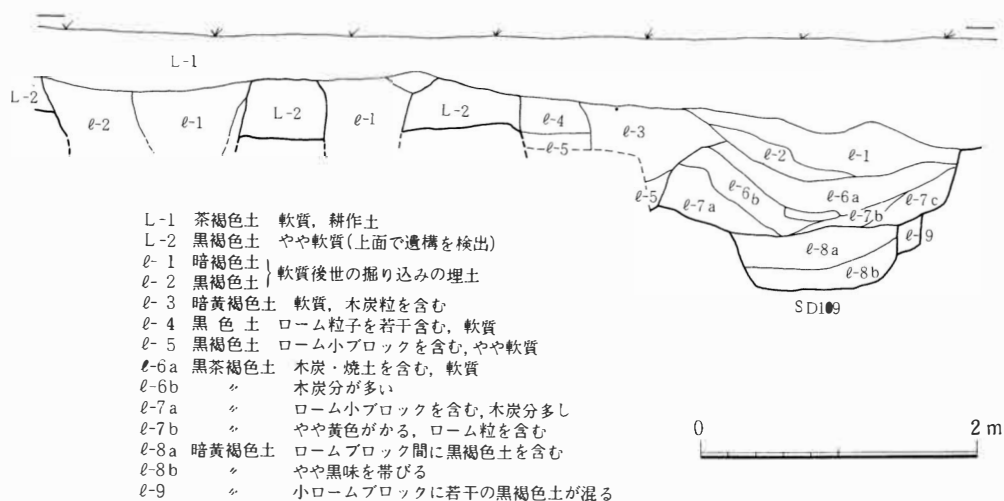 L-1
L-2
ℓ-2
ℓ-1
L-2
ℓ-1
L-2
ℓ-4
ℓ-5
ℓ-3
ℓ-5
ℓ-2
ℓ-1
ℓ-6a
ℓ-6b
ℓ-7a
ℓ-7b
ℓ-7c
ℓ-8a
ℓ-8b
ℓ-9
SD109
L-1 茶褐色土 軟質,耕作土
L-2 黒褐色土 やや軟質(上面で遺構を検出)
ℓ-1 暗褐色土
ℓ-2 黒褐色土
軟質後世の掘り込みの埋土
ℓ-3 暗黄褐色土 軟質,木炭粒を含む
ℓ-4 黒色土 ローム粒子を若干含む,軟質
ℓ-5 黒褐色土 ローム小ブロックを含む,やや軟質
ℓ-6a 黒茶褐色土 木炭・焼土を含む,軟質
ℓ-6b 〃 木炭分が多い
ℓ-7a 〃 ローム小ブロックを含む,木炭分多し
ℓ-7b 〃 やや黄色がかる,ローム粒を含む
ℓ-8a 暗黄褐色土 ロームブロック間に黒褐色土を含む
ℓ-8b 〃 やや黒味を帯びる
ℓ-9 〃 小ロームブロックに若干の黒褐色土が混る
0 2m